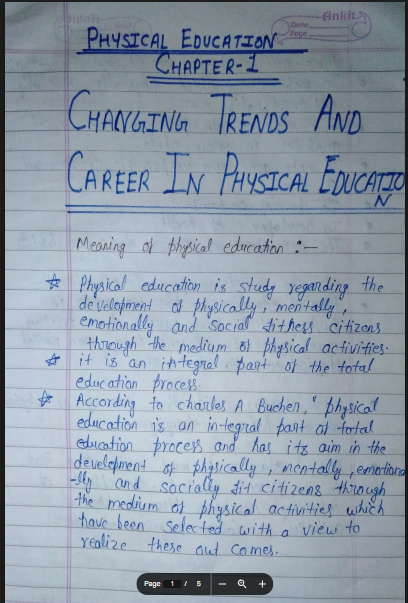 Ankit
Date
Page
PHYSICAL EDUCATION
CHAPTER-1
CHANGING TRENDS AND
CAREER IN PHYSICAL EDUCATIO
N
Meaning of physical education :-
☆ Physical education is study regarding the
development of physically, mentally,
emotionally and social fitness citizens
through the medium of physical activities.
☆ it is an integral part of the total
education process.
☆ According to charles A Bucher, "physical
education is an integral part of total
education process and has its aim in the
development of physically, mentally, emotiona
-lly and socially fit citizens through
the medium of physical activities which
have been selected with a view to
realize these out comes.
Page 1 / 5 − +